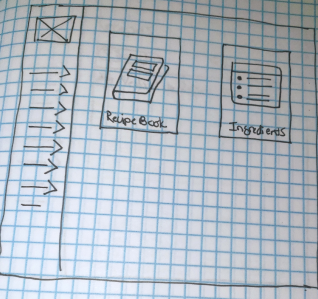 Recipe Book
Ingredients